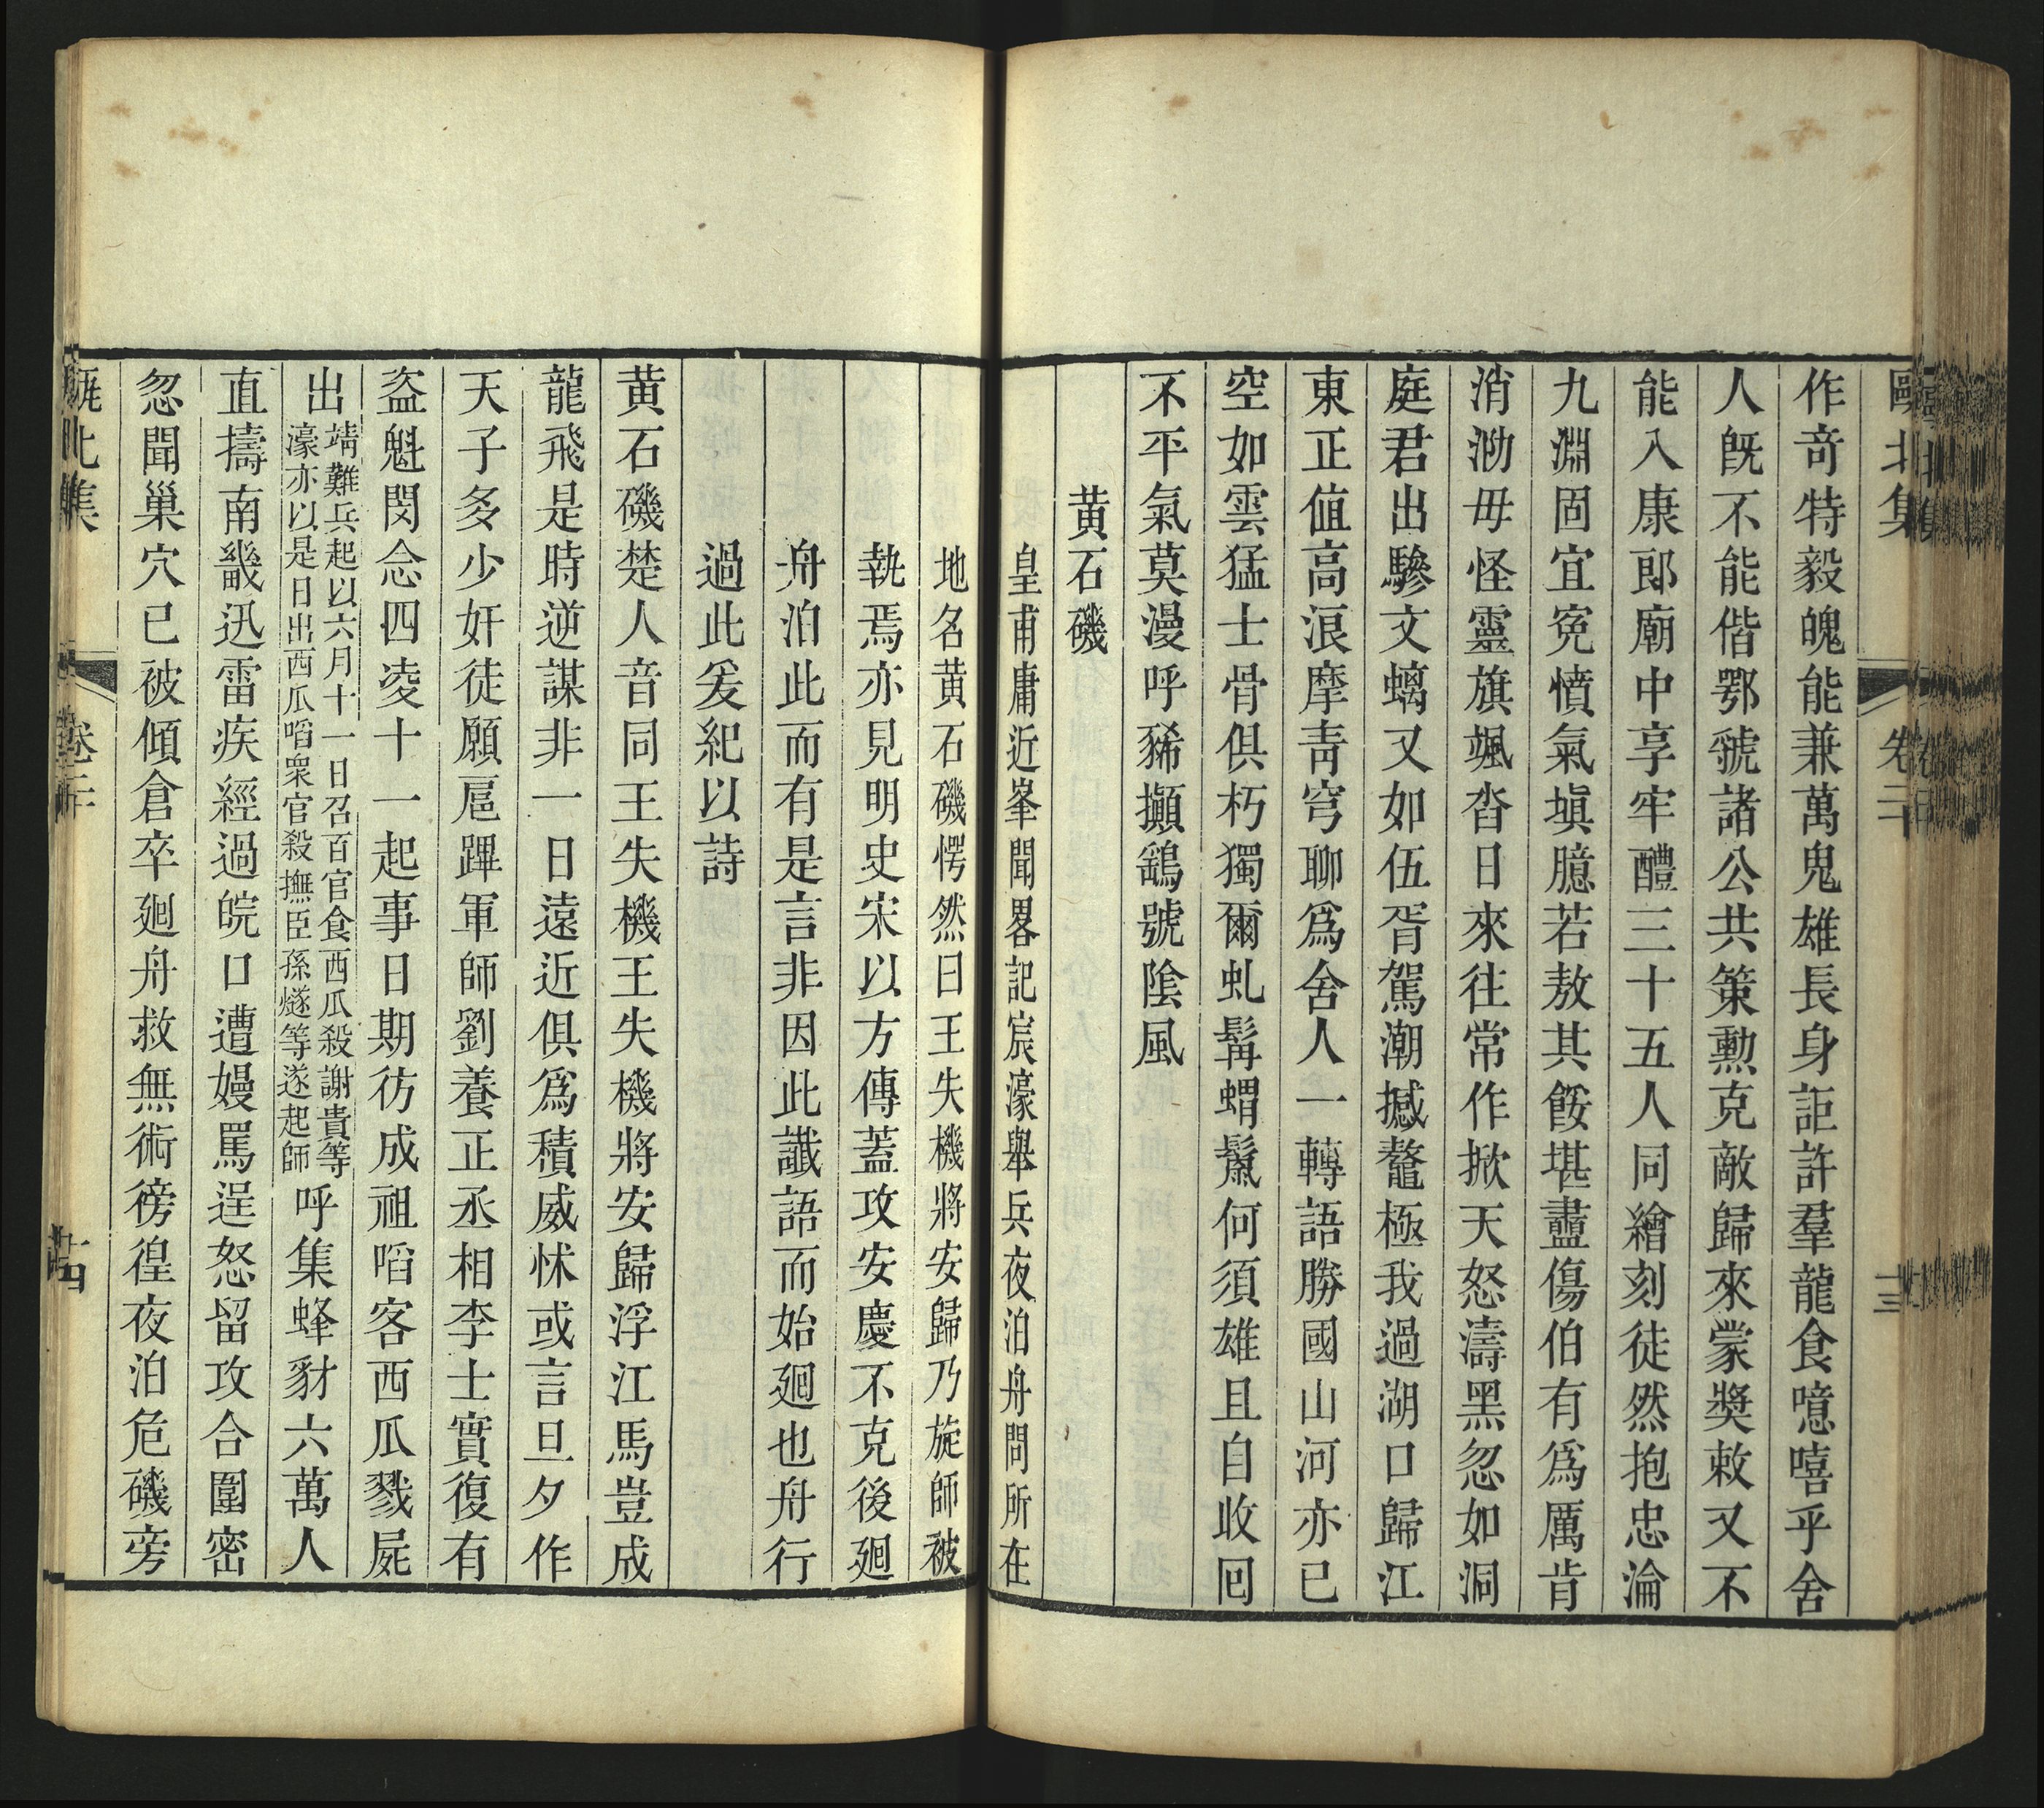 作奇特毅魄能兼萬鬼雄長身詎許羣龍食噫嘻乎舍
人旣不能偕鄂虢諸公共策勳克敵歸來蒙奬敕又不
能入康郎廟中享牢醴三十五人同繪刻徒然抱忠淪
九淵固宜寃憤氣塡臆若敖其餒堪盡傷伯有爲厲肯
消泐毋怪靈旗颯沓日來往常作掀天怒濤黑忽如洞
庭君出驂文螭又如伍胥駕潮撼鼇極我過湖口歸江
東正値高浪摩靑穹聊爲舍人一轉語勝國山河亦已
空如雲猛士骨俱朽獨爾虬髯蝟鬣何須雄且自收囘
不平氣莫漫呼豨攧鷂號陰風
黃石磯
皇甫庸近峯聞畧記宸濠舉兵夜泊舟問所在
地名黃石磯愕然曰王失機將安歸乃旋師被
執焉亦見明史宋以方傳蓋攻安慶不克後廻
舟泊此而有是言非因此讖語而始廻也舟行
過此爰紀以詩
黃石磯楚人音同王失機王失機將安歸浮江馬豈成
龍飛是時逆謀非一日遠近俱爲積威怵或言旦夕作
天子多少奸徒願扈蹕軍師劉養正丞相李士實復有
盜魁閔念四凌十一起事日期彷成祖啗客西瓜戮屍
出靖難兵起以六月十一日召百官食西瓜殺謝貴等
濠亦以是日出西瓜啗衆官殺撫臣孫燧等遂起師呼集蜂豺六萬人
直擣南畿迅雷疾經過皖口遭嫚罵逞怒留攻合圍密
忽聞巢穴已被傾倉卒廻舟救無術徬徨夜泊危磯旁
甌北集
卷二
十三
甌北集
十四